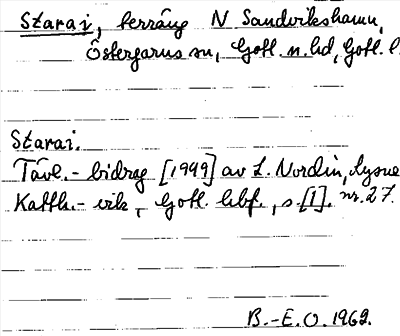 Starai, terräng N Sandvikshamn,
Östergarns sn, Gotl. n. hd, Gotl. l.
Starai.
Tävl.-bidrag [1949] av L. Nordin, Lysne
Katth.-vik, Gotl. hbf., s. [1]. nr. 27.
B.-E. O. 1969.